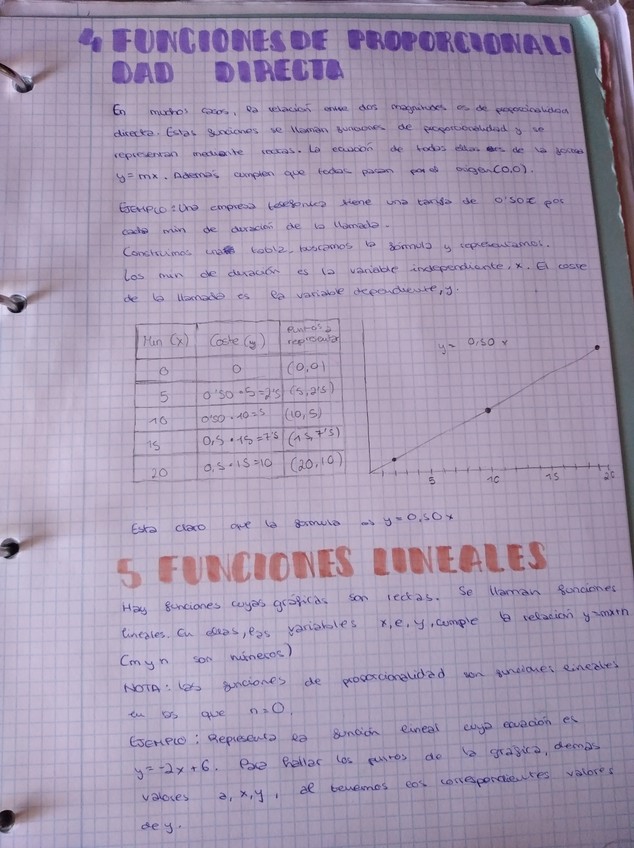 4 FUNCIONES DE PROPORCIONALI
DAD DIRECTA
En muchos casos, la relación entre dos magnitudes es de proporcionalidad
directa. Estas funciones se llaman funciones de proporcionalidad y se
representan mediante rectas. La ecuación de todas ellas es de la forma
y=mx. Además cumplen que todas pasan por el origen (0,0).
EJEMPLO: Una empresa telefónica tiene una tarifa de 0'50€ por
cada min de duración de la llamada.
Construimos una tabla, buscamos la fórmula y representamos.
Los min de duración es la variable independiente, x. El coste
de la llamada es la variable dependiente, y.
Min (x) Coste (y) Puntos a representar
0 0 (0,0)
5 0'50·5=2'5 (5,2'5)
10 0'50·10=5 (10,5)
15 0,5·15=7'5 (15,7'5)
20 0,5·15=10 (20,10)
y= 0,50 x
5 10 15 20
Esta claro que la fórmula => y=0,50x
5 FUNCIONES LINEALES
Hay funciones cuyas gráficas son rectas. Se llaman funciones
lineales. En ellas, las variables x, e, y, cumple la relación y=mx+n
(m y n son números)
NOTA: Las funciones de proporcionalidad son funciones lineales
en las que n=0.
EJEMPLO: Representa la función lineal cuya ecuación es
y=-2x+6. Para hallar los puntos de la gráfica, demas
valores a, x, y, al tenemos los correspondientes valores
de y.